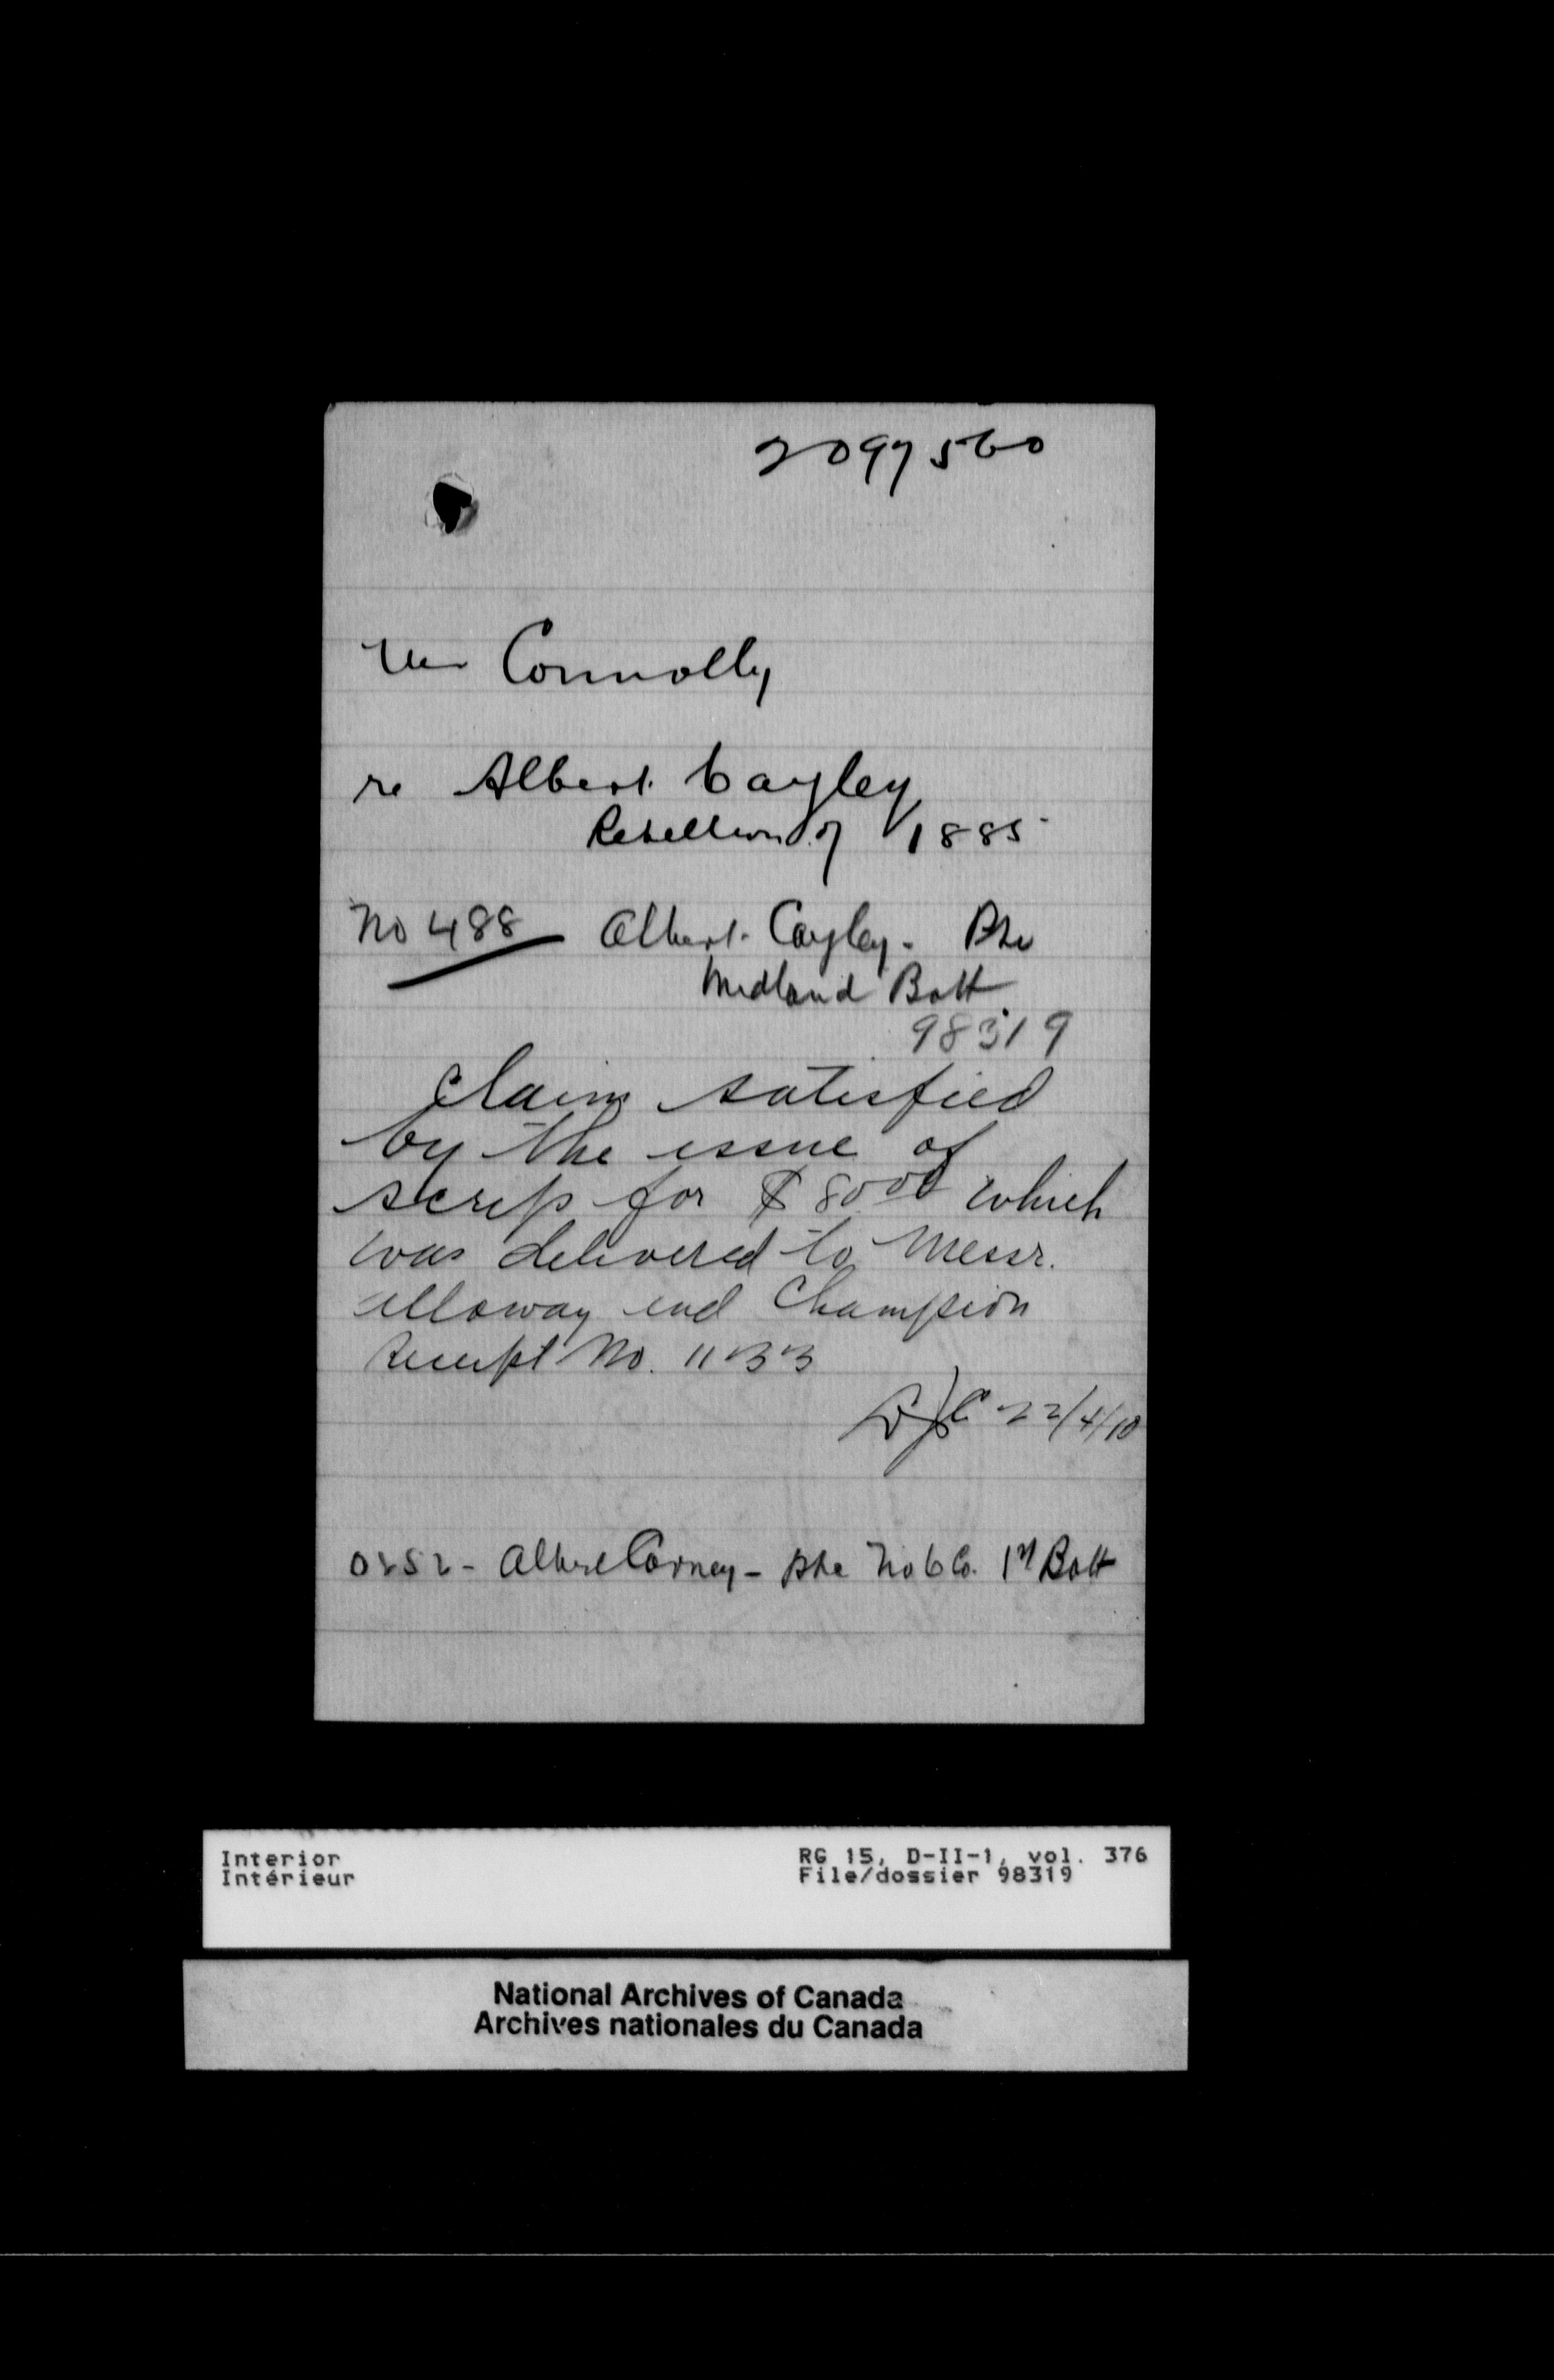 2097560
Mr Connolly
re Albert Cayley
Rebellion of 1885
No 488 Albert Cayley - Pte
Midland Batt
98319
Claim satisfied
by the issue of
scrip for $80.00 which
was delivered to Messr.
Alloway and Champion
receipt No. 1133
22/4/10
Albert Corney - Pte No 6 Co. 1st Batt
Interior
Intérieur
RG 15, D-II-1, vol. 376
File/dossier 98319
National Archives of Canada
Archives nationales du Canada